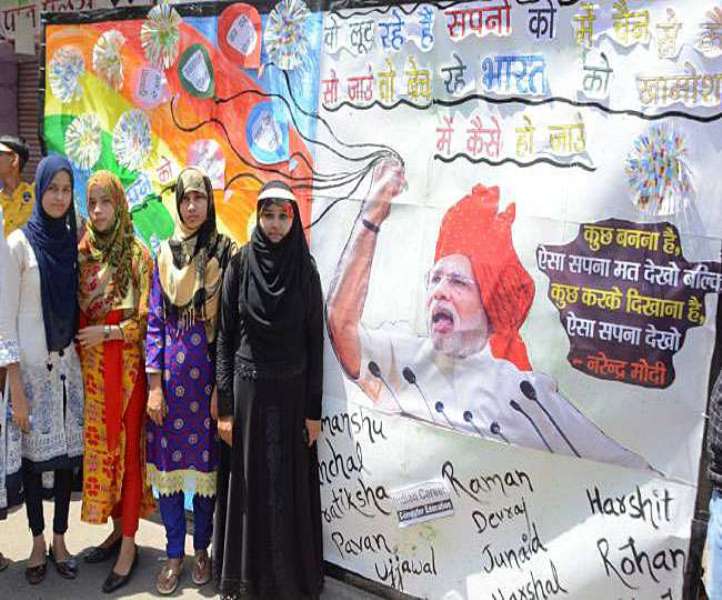 वो लूट रहे है सपनो को में चैन से कै
सो जाउं वो बेच रहे भारत को खामोश
में कैसे हो जाउं
कुछ बनना है,
ऐसा सपना मत देखो बल्कि
कुछ करके दिखाना है,
ऐसा सपना देखो
- नरेन्द्र मोदी
manshu
nchal
ratiksha
Raman
Computer Education
Devraj
Harshit
Pavan
Ujjawal
Junaid
Rohan
Harshal